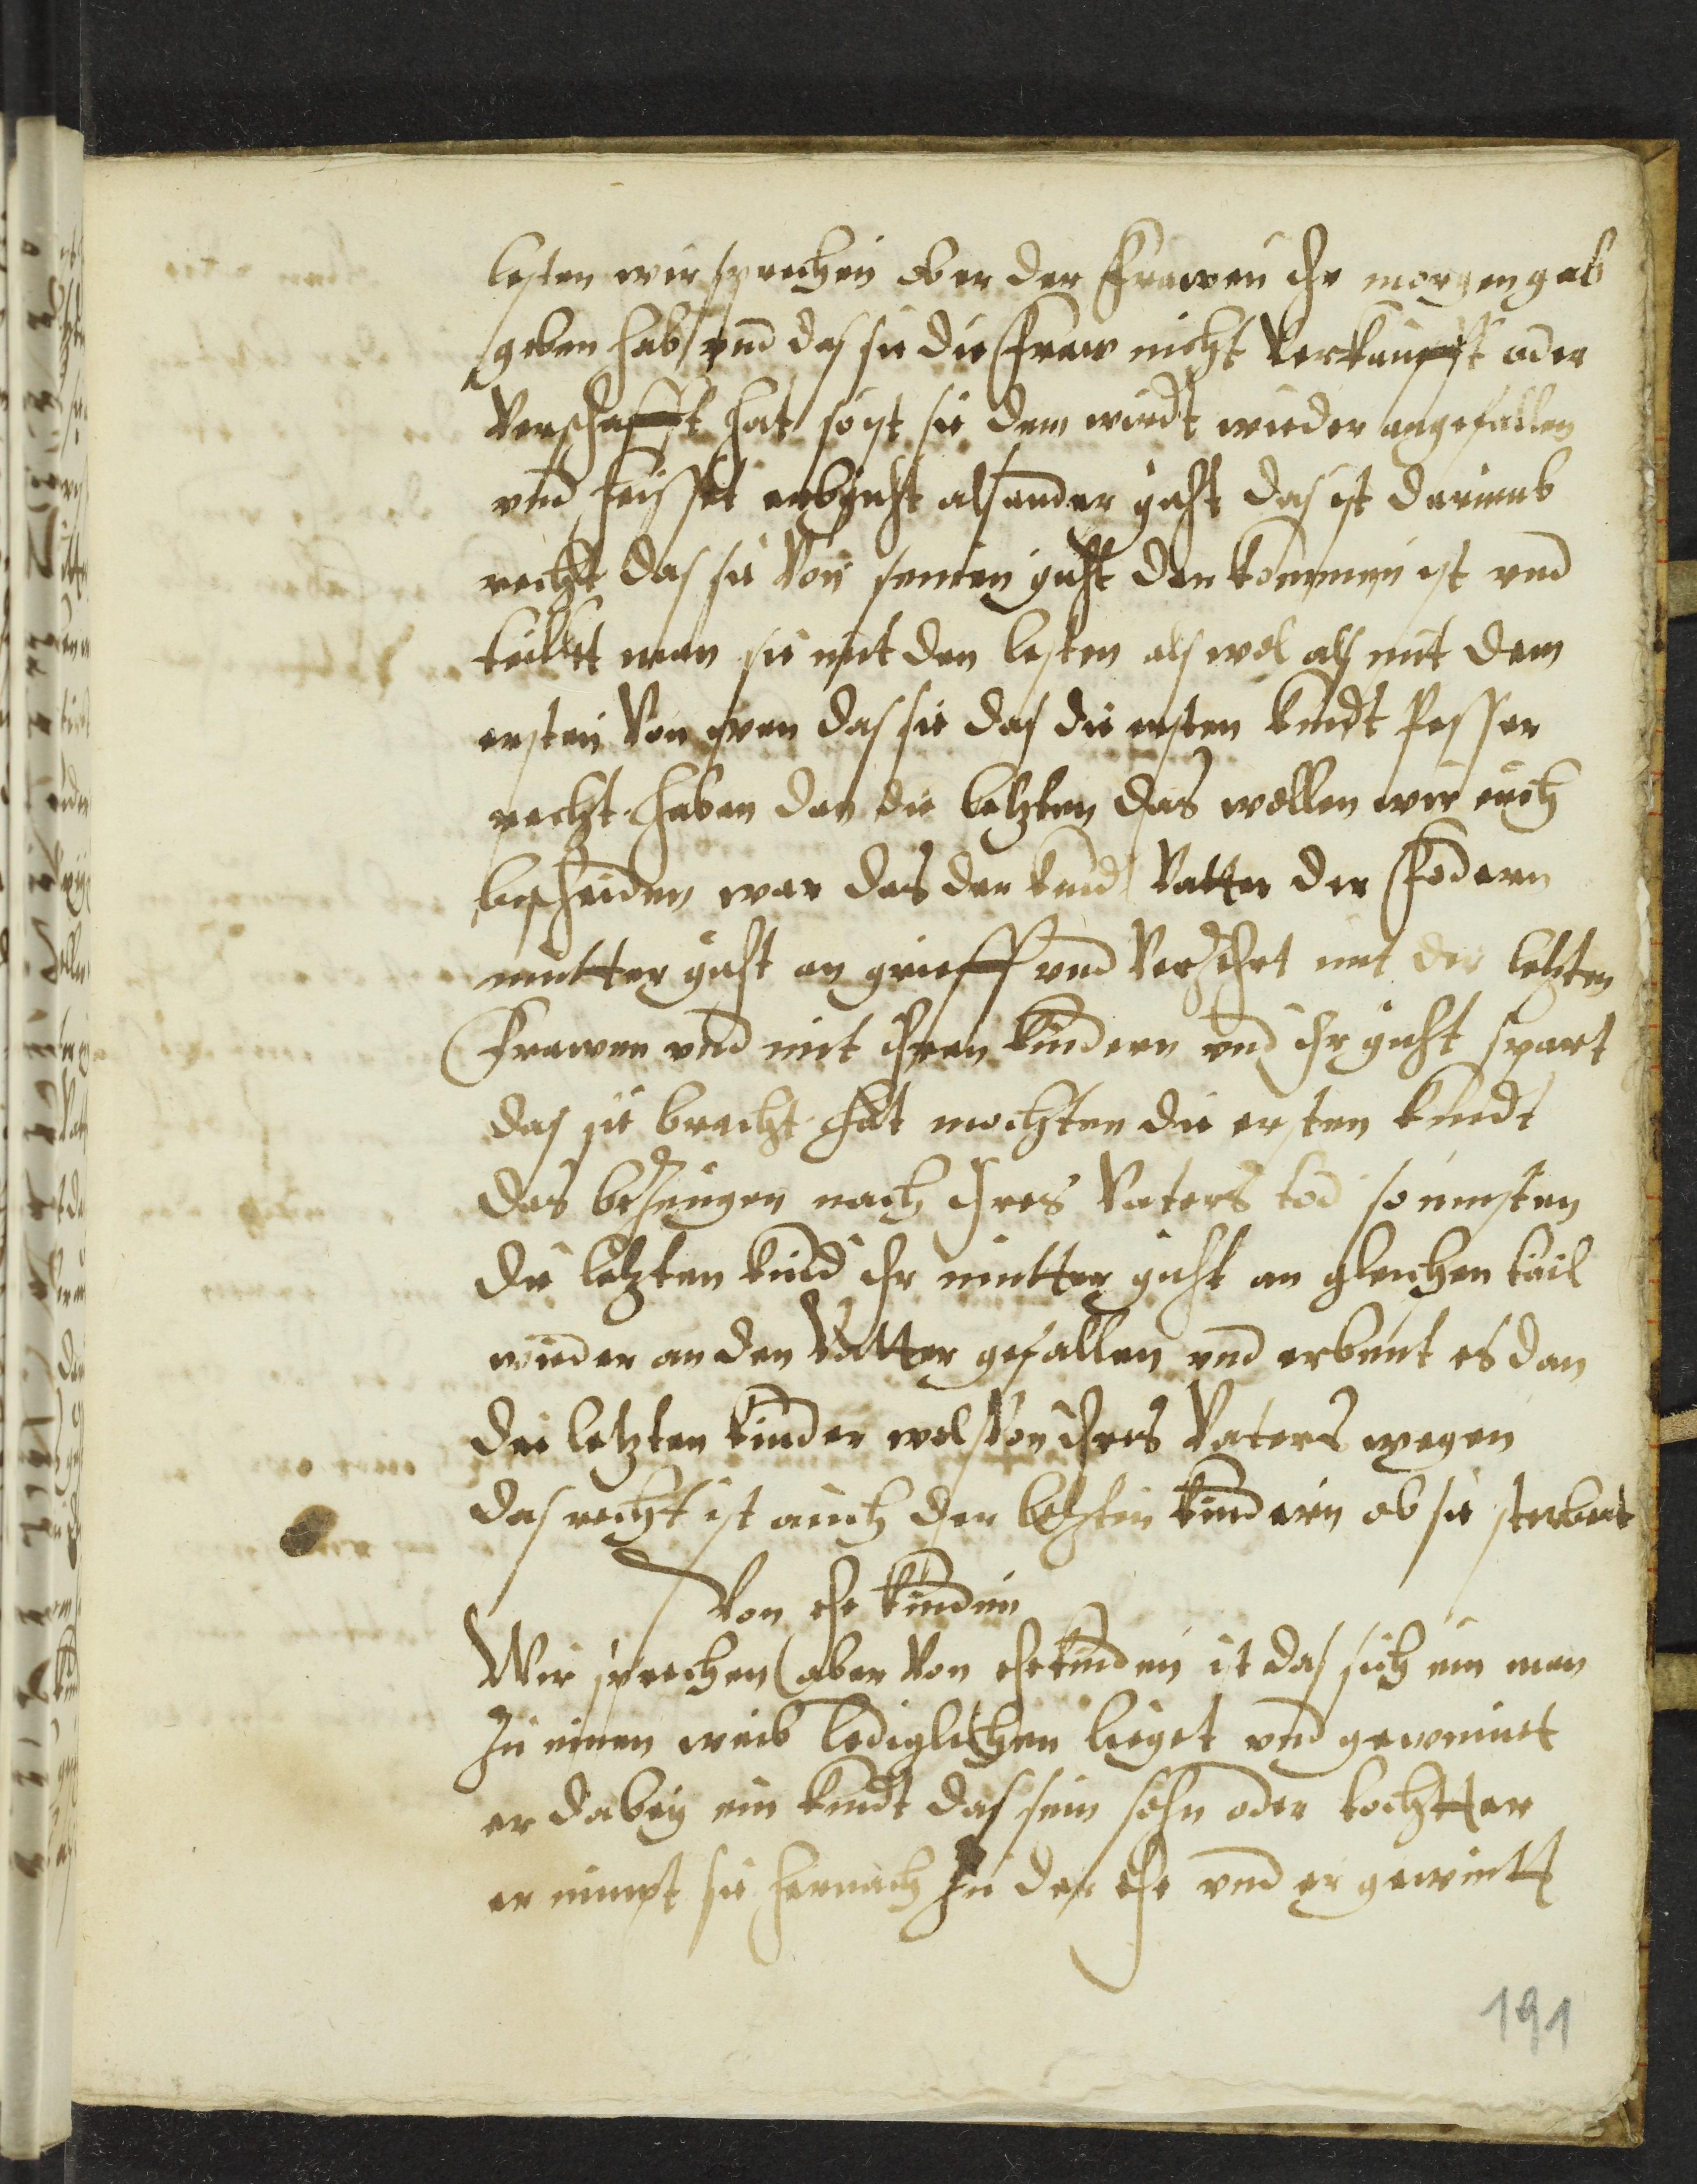 lesten wir sprechen ob er der frawen ihr morgengab
geben hab vnd das sie die fraw nicht verkaufft oder
verschafft hat so ist sie dem wirdt wieder angefallen
vnd heisset erbguht als ander guht das ist darumb
recht das sie von seinen guht dar kommen ist vnd
teillett man sie mit den lesten als wol als mit dem
ersten von wen das sie das die ersten kindt pesser
recht haben dan die letzten das wollen wir euch
bescheiden war das der kind vatter der fodern
mutter guht an grieff vnd verzehrt mit der letzten
frawen vnd mit ihren kindern vnd ihr guht spart
das sie bracht hat mochten die ersten kindt
das bezeugen nach ihres Vaters tod so muesten
die letzten kind ihr mutter guht an gleichen tail
wieder an den vatter gefallen vnd erbent es dan
die letzten kinder wol von ihres Vaters wegen
das recht ist auch der letzten kindern ob sie sterbent
Von ehe kinden
Wir sprechen aber von ehekinden ist das sich ein man
zu einen weib ledigkichen lieget vnd gewinnet
er dabey ein kindt das sein sohn oder tochtter
er nimpt sie hernach zu der ehe vnd er gewintt
191